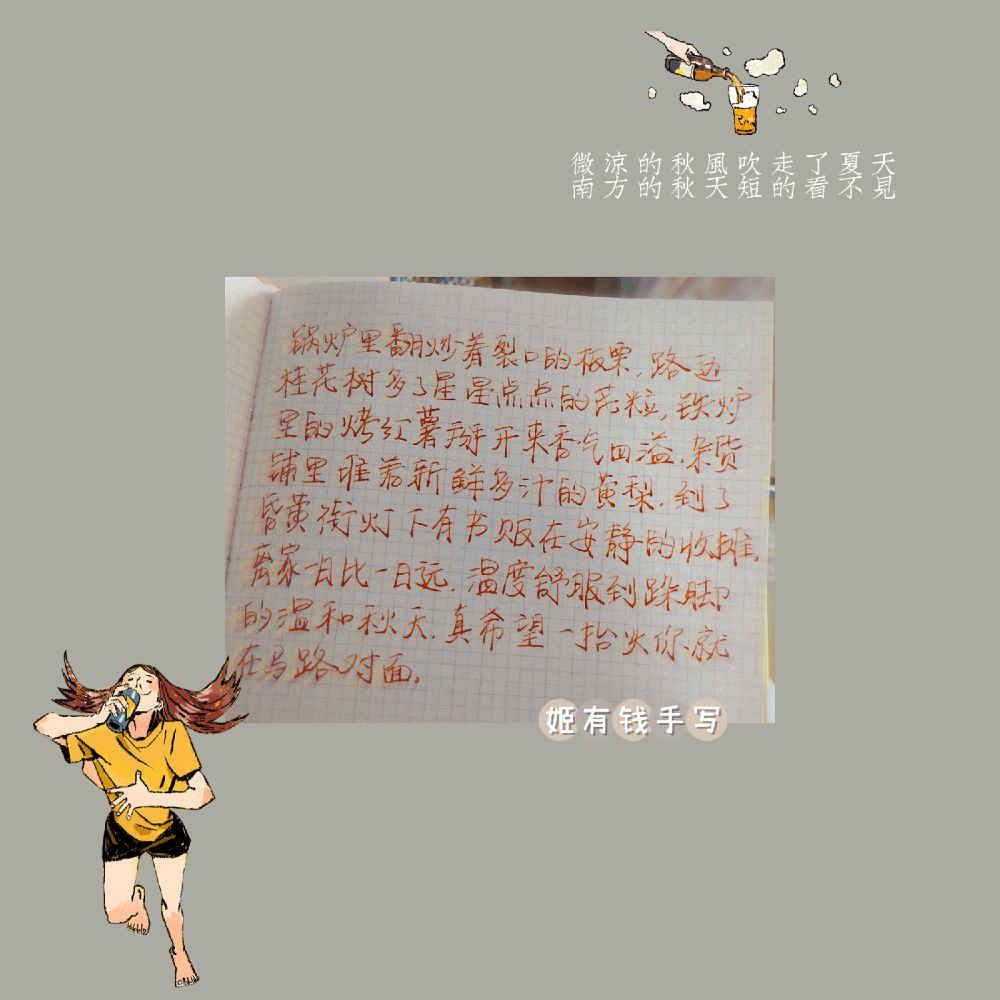 微涼的秋風吹走了夏天
南方的秋天短的看不見
锅炉里翻炒着裂口的板栗，路边
桂花树多了星星点点的花粒，铁炉
里的烤红薯掰开来香气四溢，杂货
铺里堆着新鲜多汁的黄梨，到了
昏黄街灯下有书贩在安静的收摊。
离家一日比一日远，温度舒服到跺脚
的温和秋天，真希望一抬头你就
在马路对面。
姬有钱手写